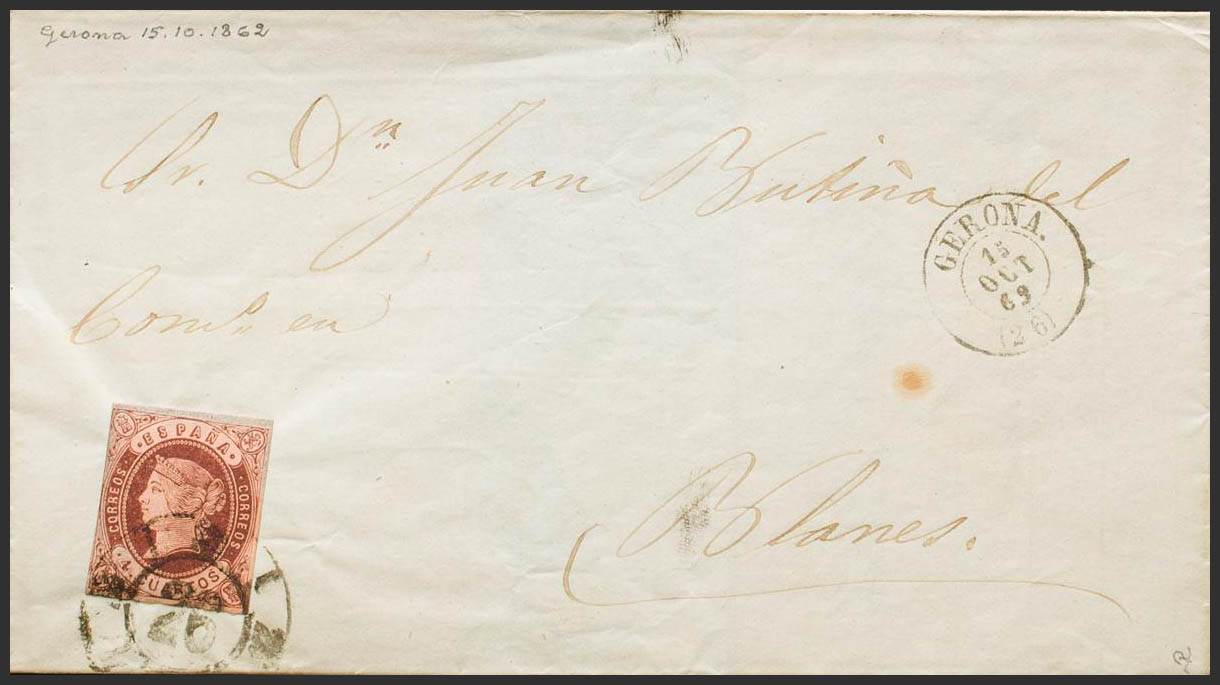 Gerona 15.10.1862
Sr. Dn Juan Butiña del
Comº en
Blanes.
GERONA.
15
OCT
62
(26)
·ESPAÑA·
CORREOS.
CORREOS.
4 CUARTOS